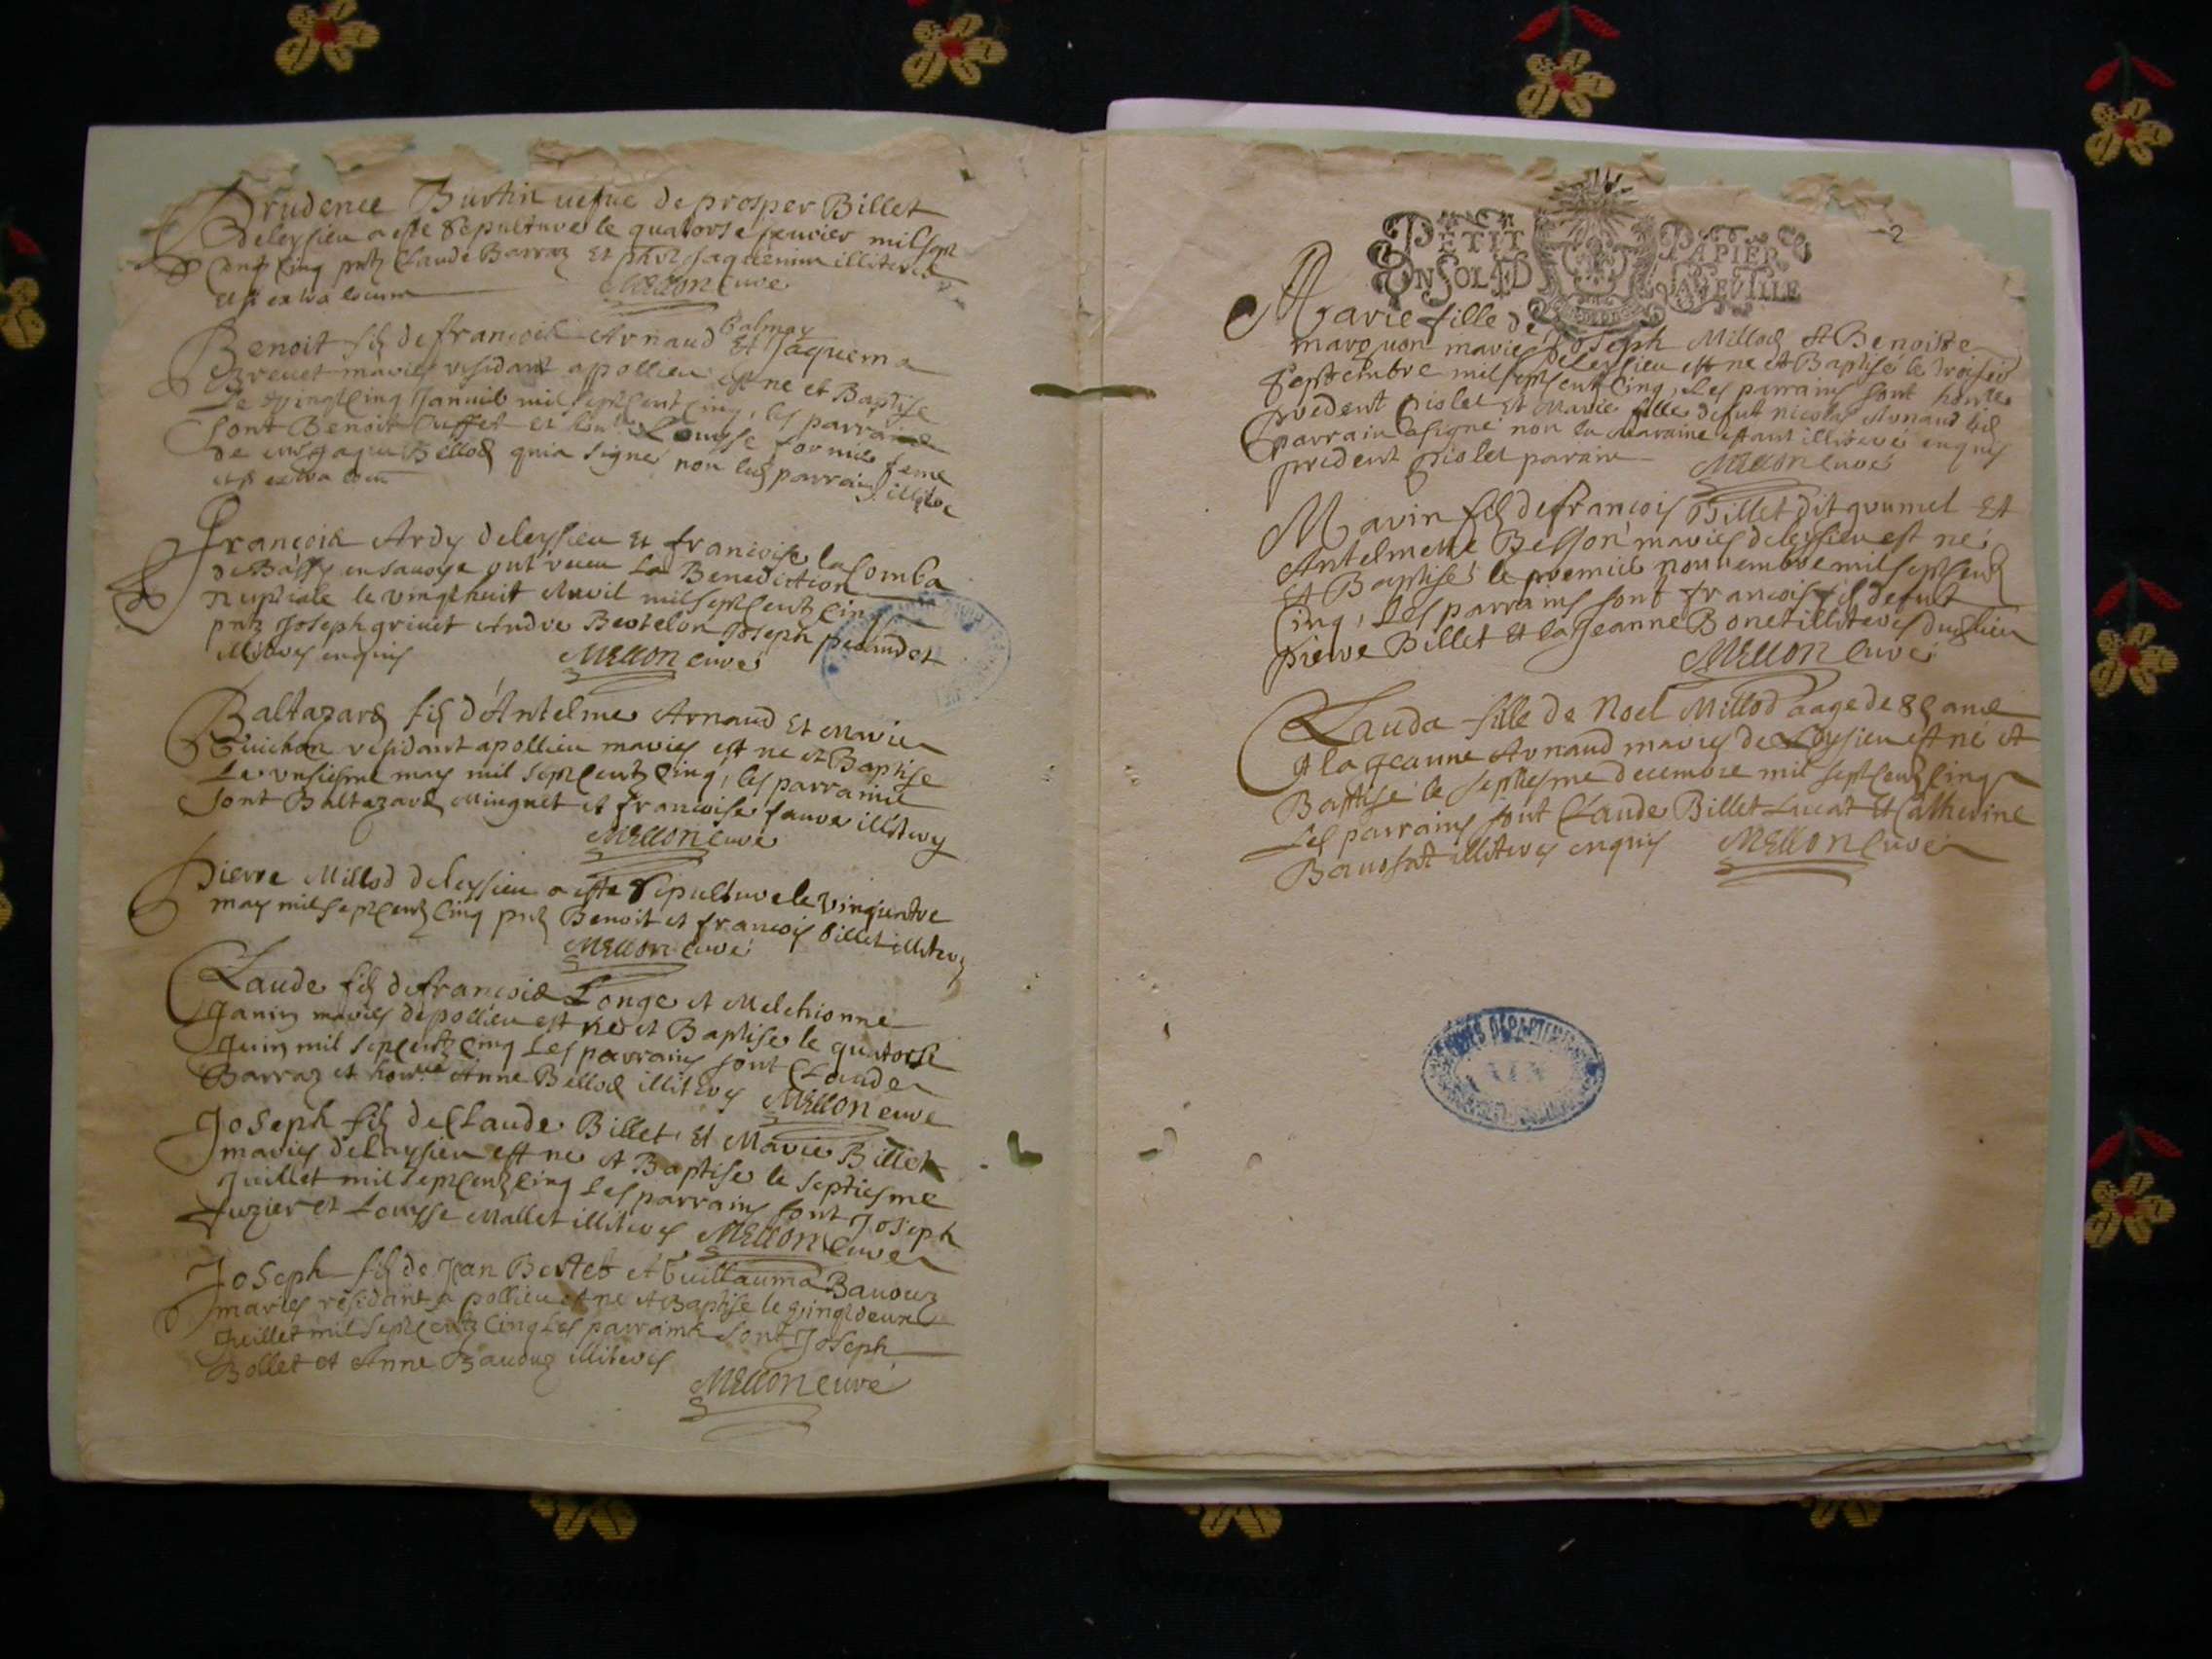 Prudence Burtin uefue de prosper Billet
deleysieu a este sepulturé le quatorse feurier mil sept
Cent Cinq pntz Claude Barraz Et illiteres
et p extra locum Mellon Curé
Benoit filz de francois Arnaud Balmay Et Jaquema
Breuet mariés residant a pollieu est ne et Baptise
Le vingt Cinq Januié mil sept Cent Cinq, les parrains
sont Benoit Cuffet et Louyse fornie feme
de Billod qui a signé non led parrain illitere
et p extra locum
Francois Ardy deleysieu Et francoise la Comba
de en sauoye ont receu La Benediction
nuptiale le vingt huit Auril mil sept Cent Cinq
pntz Joseph griuet Andre Bertelon Joseph
illiteres enquis Mellon curé
Baltazard filz d'Antelme Arnaud Et Marie
Guichon residant a pollieu mariés est ne et Baptise
Le unsiesme may mil sept Cent Cinq, les parrains
sont Baltazard Minguet et francoise faure illiteres
Mellon curé
Pierre Millod deleysieu a este sepulture le
may mil sept Cent Cinq pntz Benoit et francois Billet illiteres
Mellon curé
Claude filz de francois Longe et Melchionne
Janin mariés de pollieu est ne et Baptise le quatorse
Juin mil sept Cent Cinq Les parrains sont Claude
Barraz et honn.te Anne Billod illiteres Mellon curé
Joseph filz de Claude Billet Et Marie Billet
mariés deleysieu est ne et Baptise le septiesme
Juillet mil sept Cent Cinq Les parrains sont Joseph
Juzier et Louyse Mallet illiteres Mellon Curé
Joseph filz de Jean Bertet et Guillauma Bauouz
mariés residant a pollieu est ne et Baptise le vingt deux
Juillet mil sept Cent Cinq Les parrains sont Joseph
Bollet et Anne Bauouz illiteres
Mellon curé
2
PETIT PAPIER
UN SOL 4 D LA FEUILLE
Marie fille de Joseph Millod et Benoiste
marquon mariés deleysieu est ne et Baptisé le troisie
septembre mil sept Cent Cinq, Les parrains sont
prudent piolet Et Marie fille de fut nicolas Arnaud led
parrain a signé non la Maraine estant illiterée enquis
prudent piolet parain Mellon curé
Marin filz de francois Billet dit grumel Et
Antelmette Besson mariés deleysieu est né
Et Baptisé le premier nouuembre mil sept Cent
Cinq, Les parrains sont francois filz de fut
pierre Billet Et la Jeanne Bonet illiteres dud lieu
Mellon Curé
Lauda fille de Noel Millod aage de ans
Et la Jeanne Arnaud mariés de Leysieu est né et
Baptisé le septiesme decembre mil sept Cent Cinq
Les parrains sont Claude Billet Lucat Et Catherine
illiteres enquis Mellon Curé